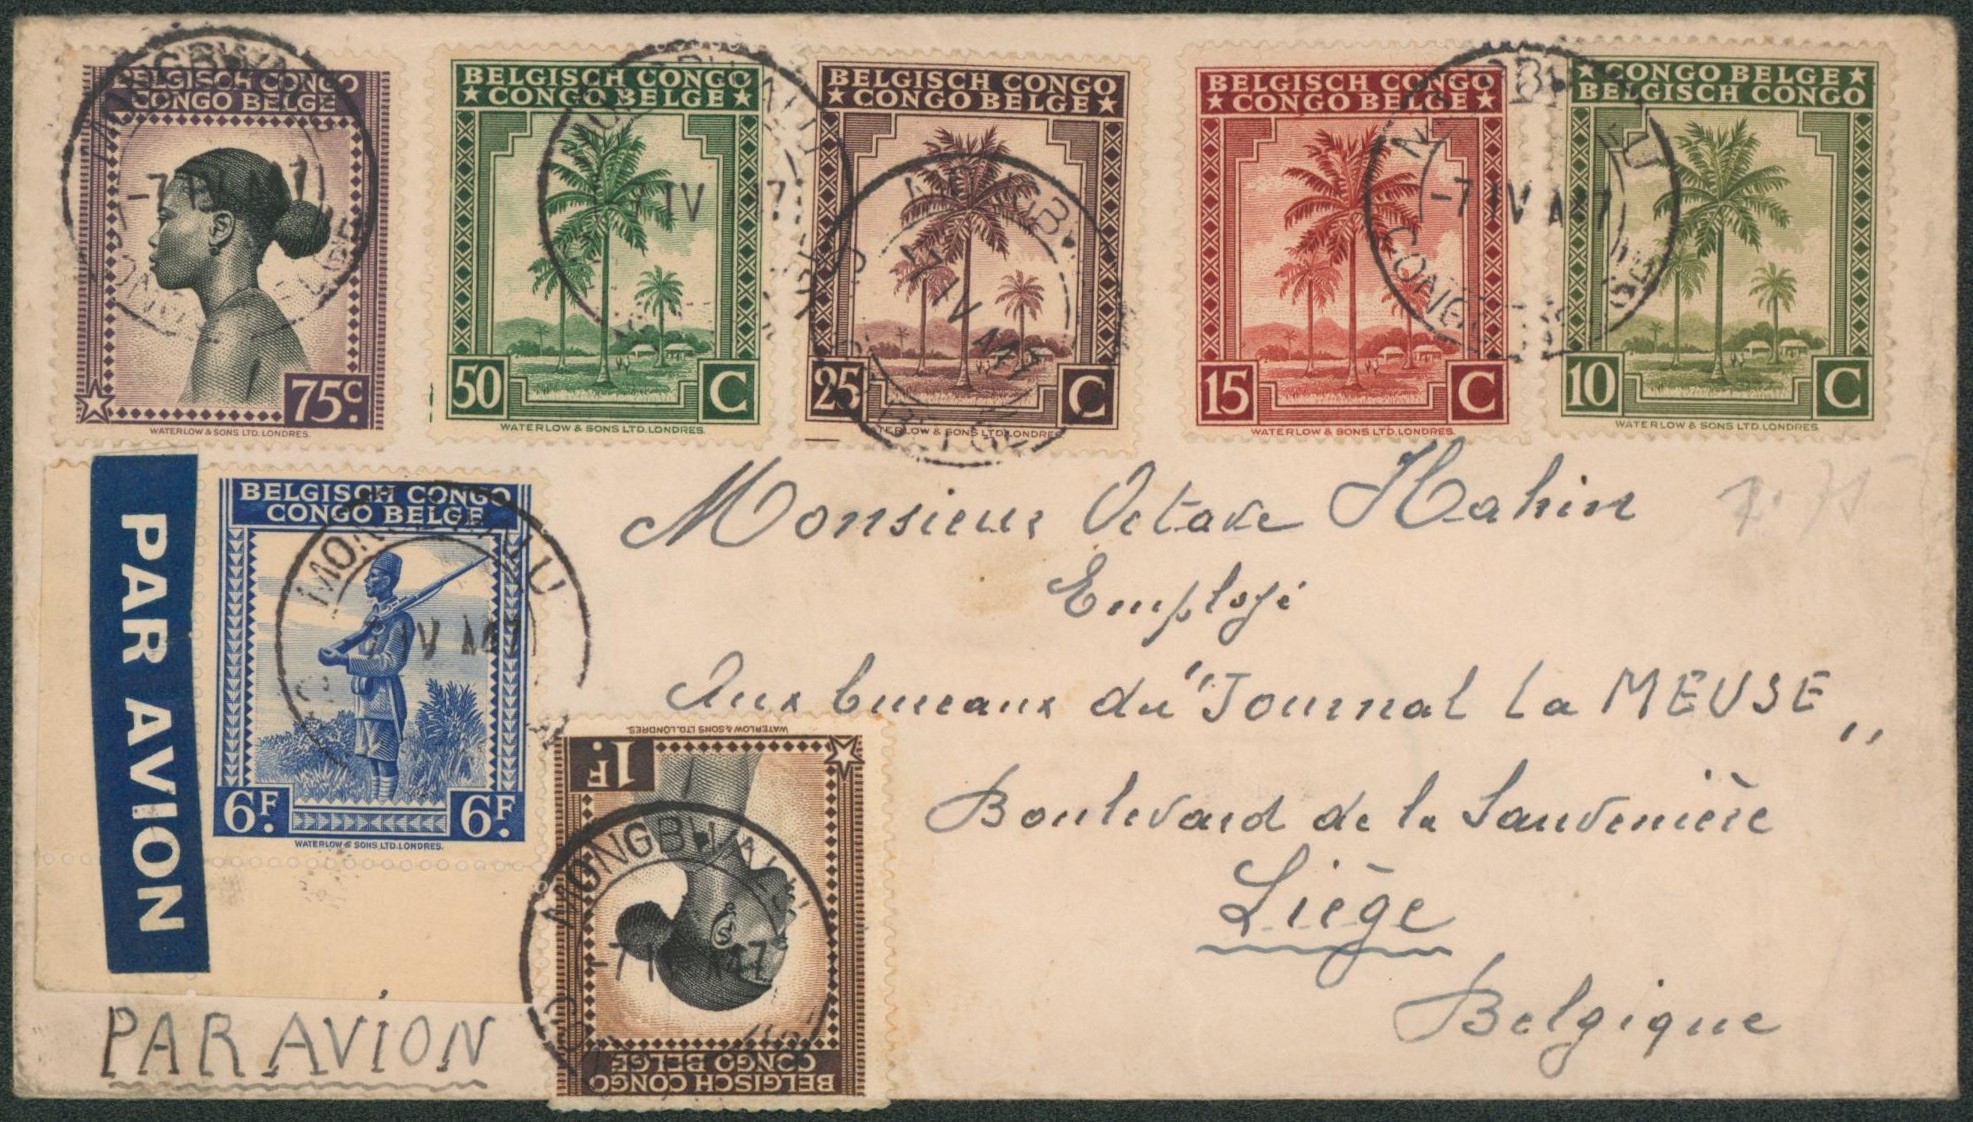 BELGISCH CONGO
CONGO BELGE
75c.
WATERLOW & SONS LTD. LONDRES.
BELGISCH CONGO
★ CONGO BELGE ★
50 C
WATERLOW & SONS LTD. LONDRES.
BELGISCH CONGO
★ CONGO BELGE ★
25 C
WATERLOW & SONS LTD. LONDRES.
BELGISCH CONGO
★ CONGO BELGE ★
15 C
WATERLOW & SONS LTD. LONDRES.
★ CONGO BELGE ★
BELGISCH CONGO
10 C
WATERLOW & SONS LTD. LONDRES.
PAR AVION
BELGISCH CONGO
CONGO BELGE
6F. 6F.
WATERLOW & SONS LTD. LONDRES.
Monsieur Octave Hahin
Employé
Aux bureaux du "Journal La MEUSE"
Boulevard de la Sauvenière
Liège
Belgique
BELGISCH CONGO
CONGO BELGE
1F.
WATERLOW & SONS LTD. LONDRES.
MONGBWALU
-7 IV
PAR AVION